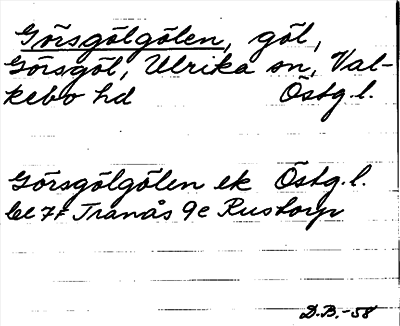 Görsgölgölen, göl,
Görsgöl, Ulrika sn, Val-
kebo hd Östg.l.
Görsgölgölen ek Östg.l.
bl 7f Tranås 9c Rustorp
D.B.-58